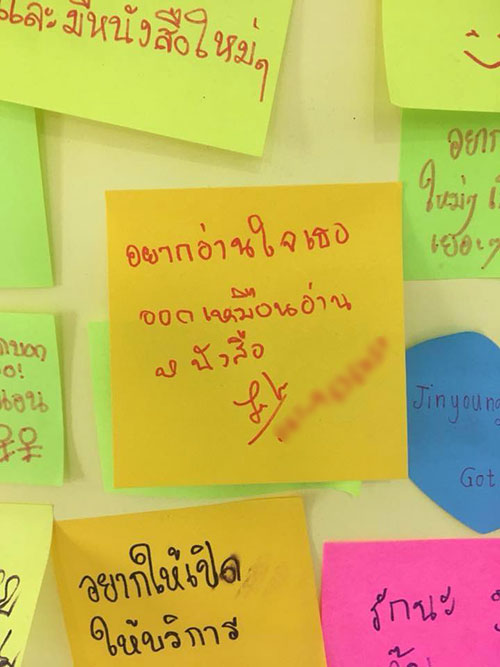 และมีหนังสือใหม่ๆ
อยาก
ใหม่ๆ
เยอะๆ
อยากอ่านใจเธอ
ออกเหมือนอ่าน
หนังสือ
Jinyoung
Got
อยากให้เปิด
ให้บริการ
รักนะ